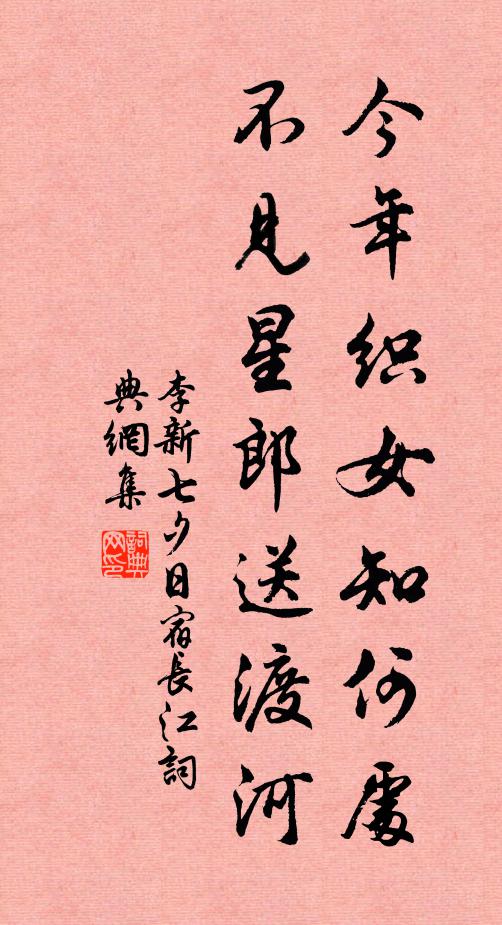 今年织女知何處
不見星郎送渡河
李新七夕日宿長江詞
典網集
詞典网印